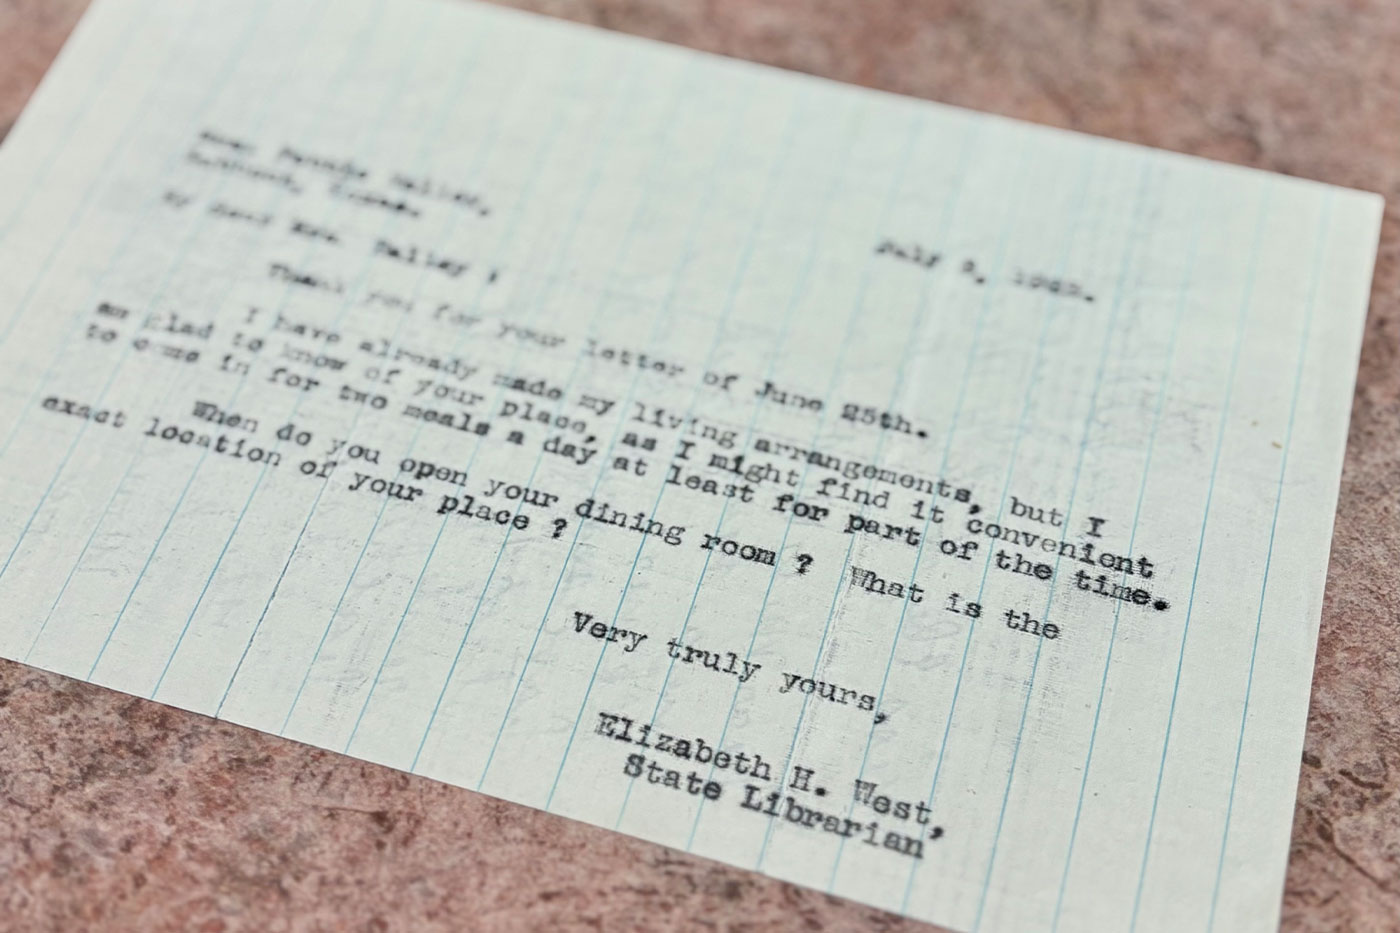 July
My dear Mrs. Bailey ;
Thank you for your letter of June 25th.
I have already made my living arrangements, but I
am glad to know of your place, as I might find it convenient
to come in for two meals a day at least for part of the time.
When do you open your dining room ? What is the
exact location of your place ?
Very truly yours,
Elizabeth H. West,
State Librarian